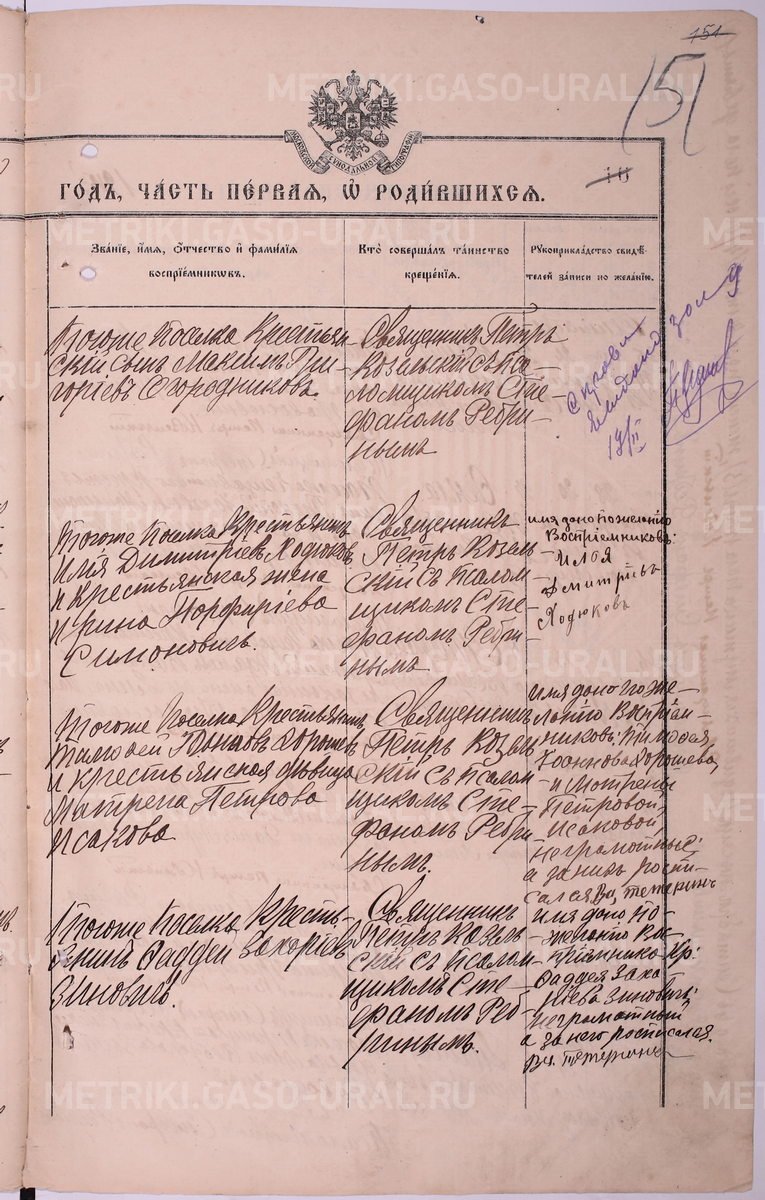 151
151
МОСКОВСКОЙ СѴНОДАЛЬНОЙ ТИПОГРАФІИ
10
ГО́ДЪ, ЧА́СТЬ ПЕ́РВАЯ, Ѡ҆ РОДИ́ВШИХСѦ.
Зва́нїе, и҆́мѧ, ѻ҆́тчество и҆ фами́лїѧ
воспрїе́мниковъ.
Кто̀ соверша́лъ та́инство
креще́нїѧ.
Рꙋкоприкла́дство свидѣ́-
телей за́писи по жела́нїю.
Тогоже Поселка Крестьян
скій сынъ Максимъ Гри-
горіевъ Огородниковъ.
Священникъ Петръ
Козельскій съ Пса-
ломщикомъ Сте-
фаномъ Ребри-
нымъ
справка
выдана
17/II
Тогоже Поселка Крестьянинъ
Илія Димитріевъ Ходюковъ
и крестьянская жена
Ирина Порфиріева
Симоновичъ.
Священникъ
Петръ Козель-
скій съ Псалом
щикомъ Сте-
фаномъ Ребри-
нымъ
имя дано по желанію
Воспріемниковъ:
Илья
Дмитріевъ
Ходюковъ
Тогоже Поселка Крестьянинъ
Тимофей Іоановъ Дорошевъ
и крестьянская дѣвица
Матрена Петрова
Исакова
Священникъ
Петръ Козель
скій съ Псалом
щикомъ Сте-
фаномъ Ребри
нымъ.
имя дано по же-
ланію Воспріем-
никовъ: Тимофея
Іоаннова Дорошева,
и Мотрены
Петровой,
Исаковой
неграмотные:
а за нихъ роспи-
сался Вц. Тетеринъ
Тогоже Поселка Кресть-
янинъ Фаддей Захоріевъ
Зиновичъ.
Священникъ
Петръ Козель
скій съ Псалом
щикомъ Сте-
фаномъ Реб-
ринымъ.
имя дано по-
желанію Вос-
пріемника Кр:
Фаддея Заха
ріева Зиновичъ:
неграмотный
а за него росписался.
Вц. Тетеринъ
METRIKI.GASO-URAL.RU